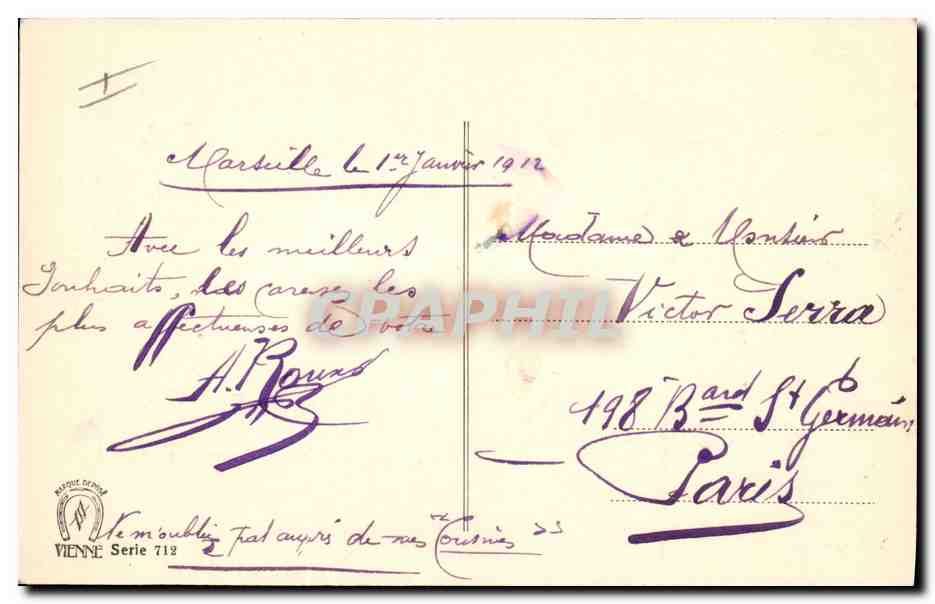 Marseille le 1er Janvier 1912
Avec les meilleurs
Souhaits, les caresses les
plus affectueuses de votre
A. Roux
Ne m'oubliez pas auprès de mes "Cousines"
Madame & Monsieur
Victor Serra
198 Bard St Germain
Paris
MARQUE DEPOSÉ
VIENNE Serie 712
CPAPHIL